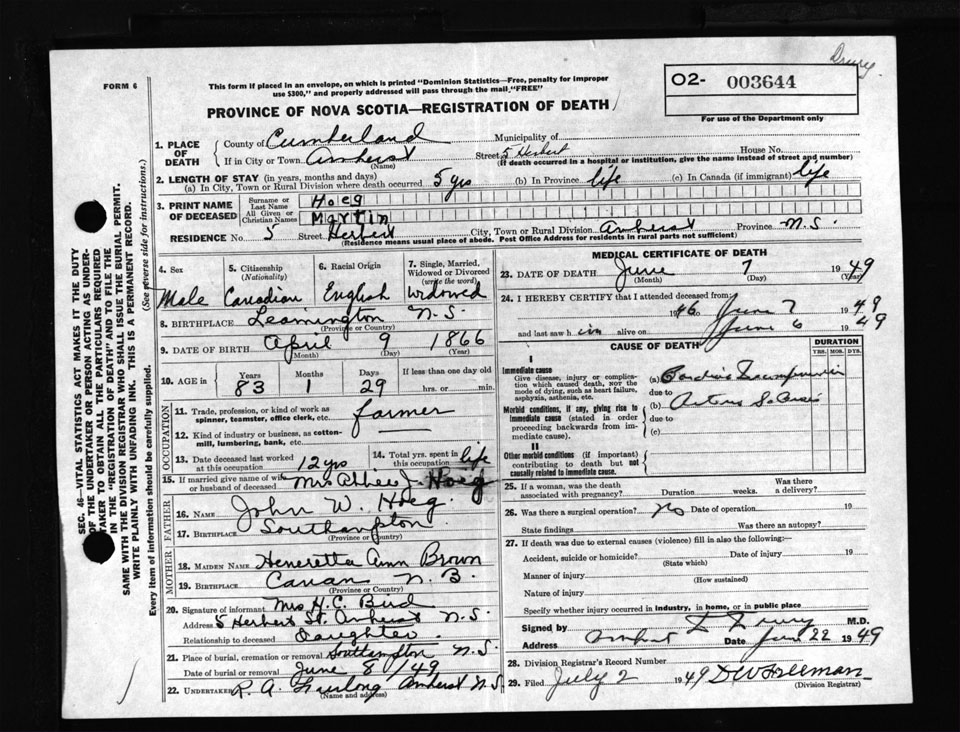 Drury
FORM 6
This form if placed in an envelope, on which is printed "Dominion Statistics—Free, penalty for improper
use $300," and properly addressed will pass through the mail "FREE"
PROVINCE OF NOVA SCOTIA—REGISTRATION OF DEATH
O2- 003644
For use of the Department only
SEC. 46—VITAL STATISTICS ACT MAKES IT THE DUTY
OF THE UNDERTAKER OR PERSON ACTING AS UNDER-
TAKER TO OBTAIN ALL THE PARTICULARS REQUIRED
IN THE "REGISTRATION OF DEATH" AND TO FILE THE
SAME WITH THE DIVISION REGISTRAR WHO SHALL ISSUE THE BURIAL PERMIT.
WRITE PLAINLY WITH UNFADING INK. THIS IS A PERMANENT RECORD.
Every item of information should be carefully supplied. (See reverse side for instructions.)
1. PLACE OF DEATH
County of Cumberland Municipality of
If in City or Town Amherst Street 5 Herbert House No.
(Name) (If death occurred in a hospital or institution, give the name instead of street and number)
2. LENGTH OF STAY (in years, months and days)
(a) In City, Town or Rural Division where death occurred 5 yrs (b) In Province life (c) In Canada (if immigrant) life
3. PRINT NAME OF DECEASED
Surname or Last Name Hoeg
All Given or Christian Names Martin
RESIDENCE No. 5 Street Herbert City, Town or Rural Division Amherst Province N.S.
(Residence means usual place of abode. Post Office Address for residents in rural parts not sufficient)
4. Sex Male
5. Citizenship (Nationality) Canadian
6. Racial Origin English
7. Single, Married, Widowed or Divorced (write the word) Widowed
8. BIRTHPLACE Leamington N.S.
(Province or Country)
9. DATE OF BIRTH April 9 1866
(Month) (Day) (Year)
10. AGE in Years 83 Months 1 Days 29 If less than one day old hrs. or min.
OCCUPATION
11. Trade, profession or kind of work as
spinner, teamster, office clerk, etc. farmer
12. Kind of industry or business, as cotton-
mill, lumbering, bank, etc.
13. Date deceased last worked at this occupation 12 yrs
14. Total yrs. spent in this occupation life
15. If married give name of wife or husband of deceased Mrs Abbie J. Hoeg
FATHER
16. NAME John W. Hoeg
17. BIRTHPLACE Southampton
(Province or Country)
MOTHER
18. MAIDEN NAME Heneretta Ann Brown
19. BIRTHPLACE Canan N.B.
(Province or Country)
20. Signature of informant Mrs H.C. Bird
Address 5 Herbert St. Amherst N.S.
Relationship to deceased Daughter
21. Place of burial, cremation or removal Southampton N.S.
Date of burial or removal June 8/49
22. UNDERTAKER R. A. Furlong Amherst N.S.
(Name and address)
MEDICAL CERTIFICATE OF DEATH
23. DATE OF DEATH June 7 1949
(Month) (Day) (Year)
24. I HEREBY CERTIFY that I attended deceased from:
1946 to June 7 1949
and last saw h im alive on June 6 1949
CAUSE OF DEATH
DURATION
YRS. MOS. DYS.
I
Immediate cause
Give disease, injury or complica-
tion which caused death, NOT the
mode of dying, such as heart failure,
asphyxia, asthenia, etc.
(a)
due to
Morbid conditions, if any, giving rise to
immediate cause (stated in order
proceeding backwards from im-
mediate cause).
(b)
due to
(c)
II
Other morbid conditions (if important)
contributing to death but not
causally related to immediate cause.
25. If a woman, was the death associated with pregnancy? Duration weeks. Was there a delivery?
26. Was there a surgical operation? No Date of operation 19
State findings Was there an autopsy?
27. If death was due to external causes (violence) fill in also the following:—
Accident, suicide or homicide? Date of injury 19
(State which)
Manner of injury
(How sustained)
Nature of injury
Specify whether injury occurred in industry, in home, or in public place
Signed by Drury M.D.
Address Amherst Date June 22 1949
28. Division Registrar's Record Number
29. Filed July 2 1949 D W Freeman
(Division Registrar)